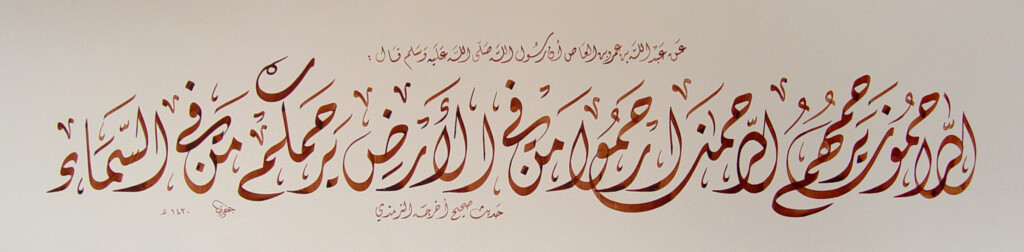 عن عبد الله بن عمرو بن العاص أن رسول الله صلى الله عليه وسلم قال :
الراحمون يرحمهم الرحمن ارحموا من في الأرض يرحمكم من في السماء
حديث صحيح أخرجه الترمذي
١٤٣٠ هـ